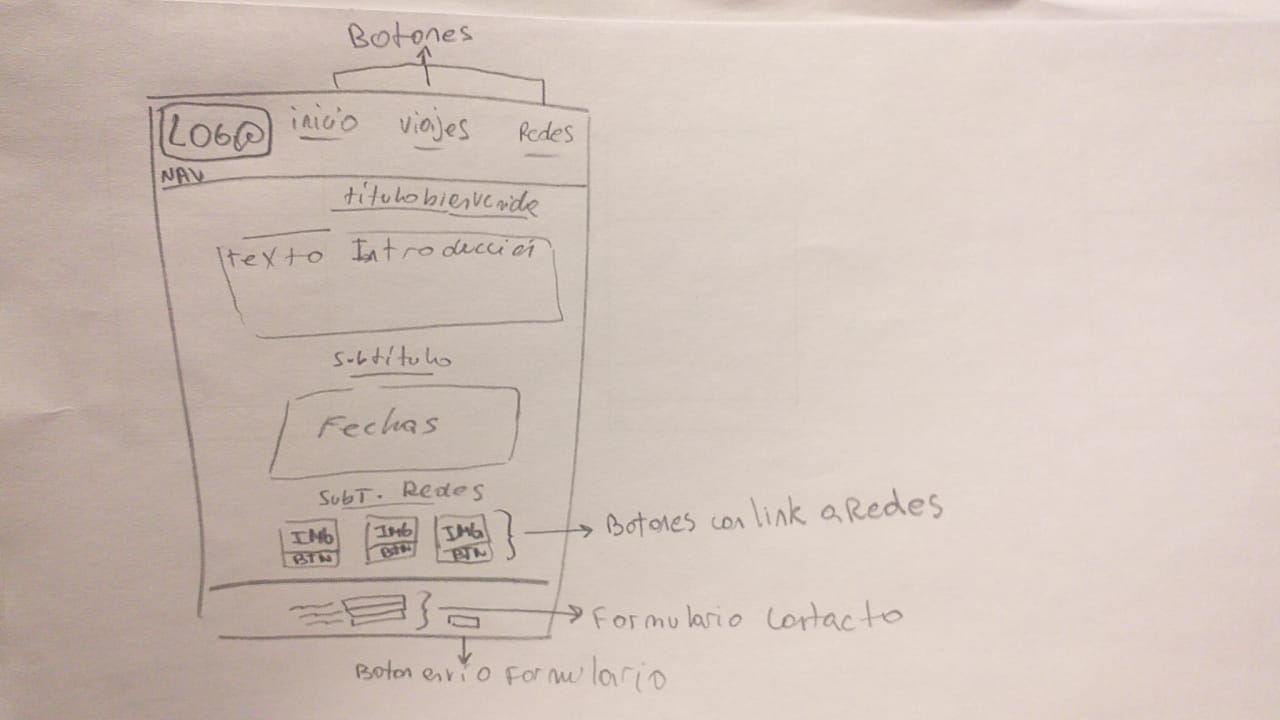 Botones
LOGO inicio viajes Redes
NAV
título bienvenide
texto Introducció
Subtítulo
Fechas
SubT. Redes
IMG IMG IMG
BTN BTN BTN
Botones con link a Redes
Formulario contacto
Boton envio formulario